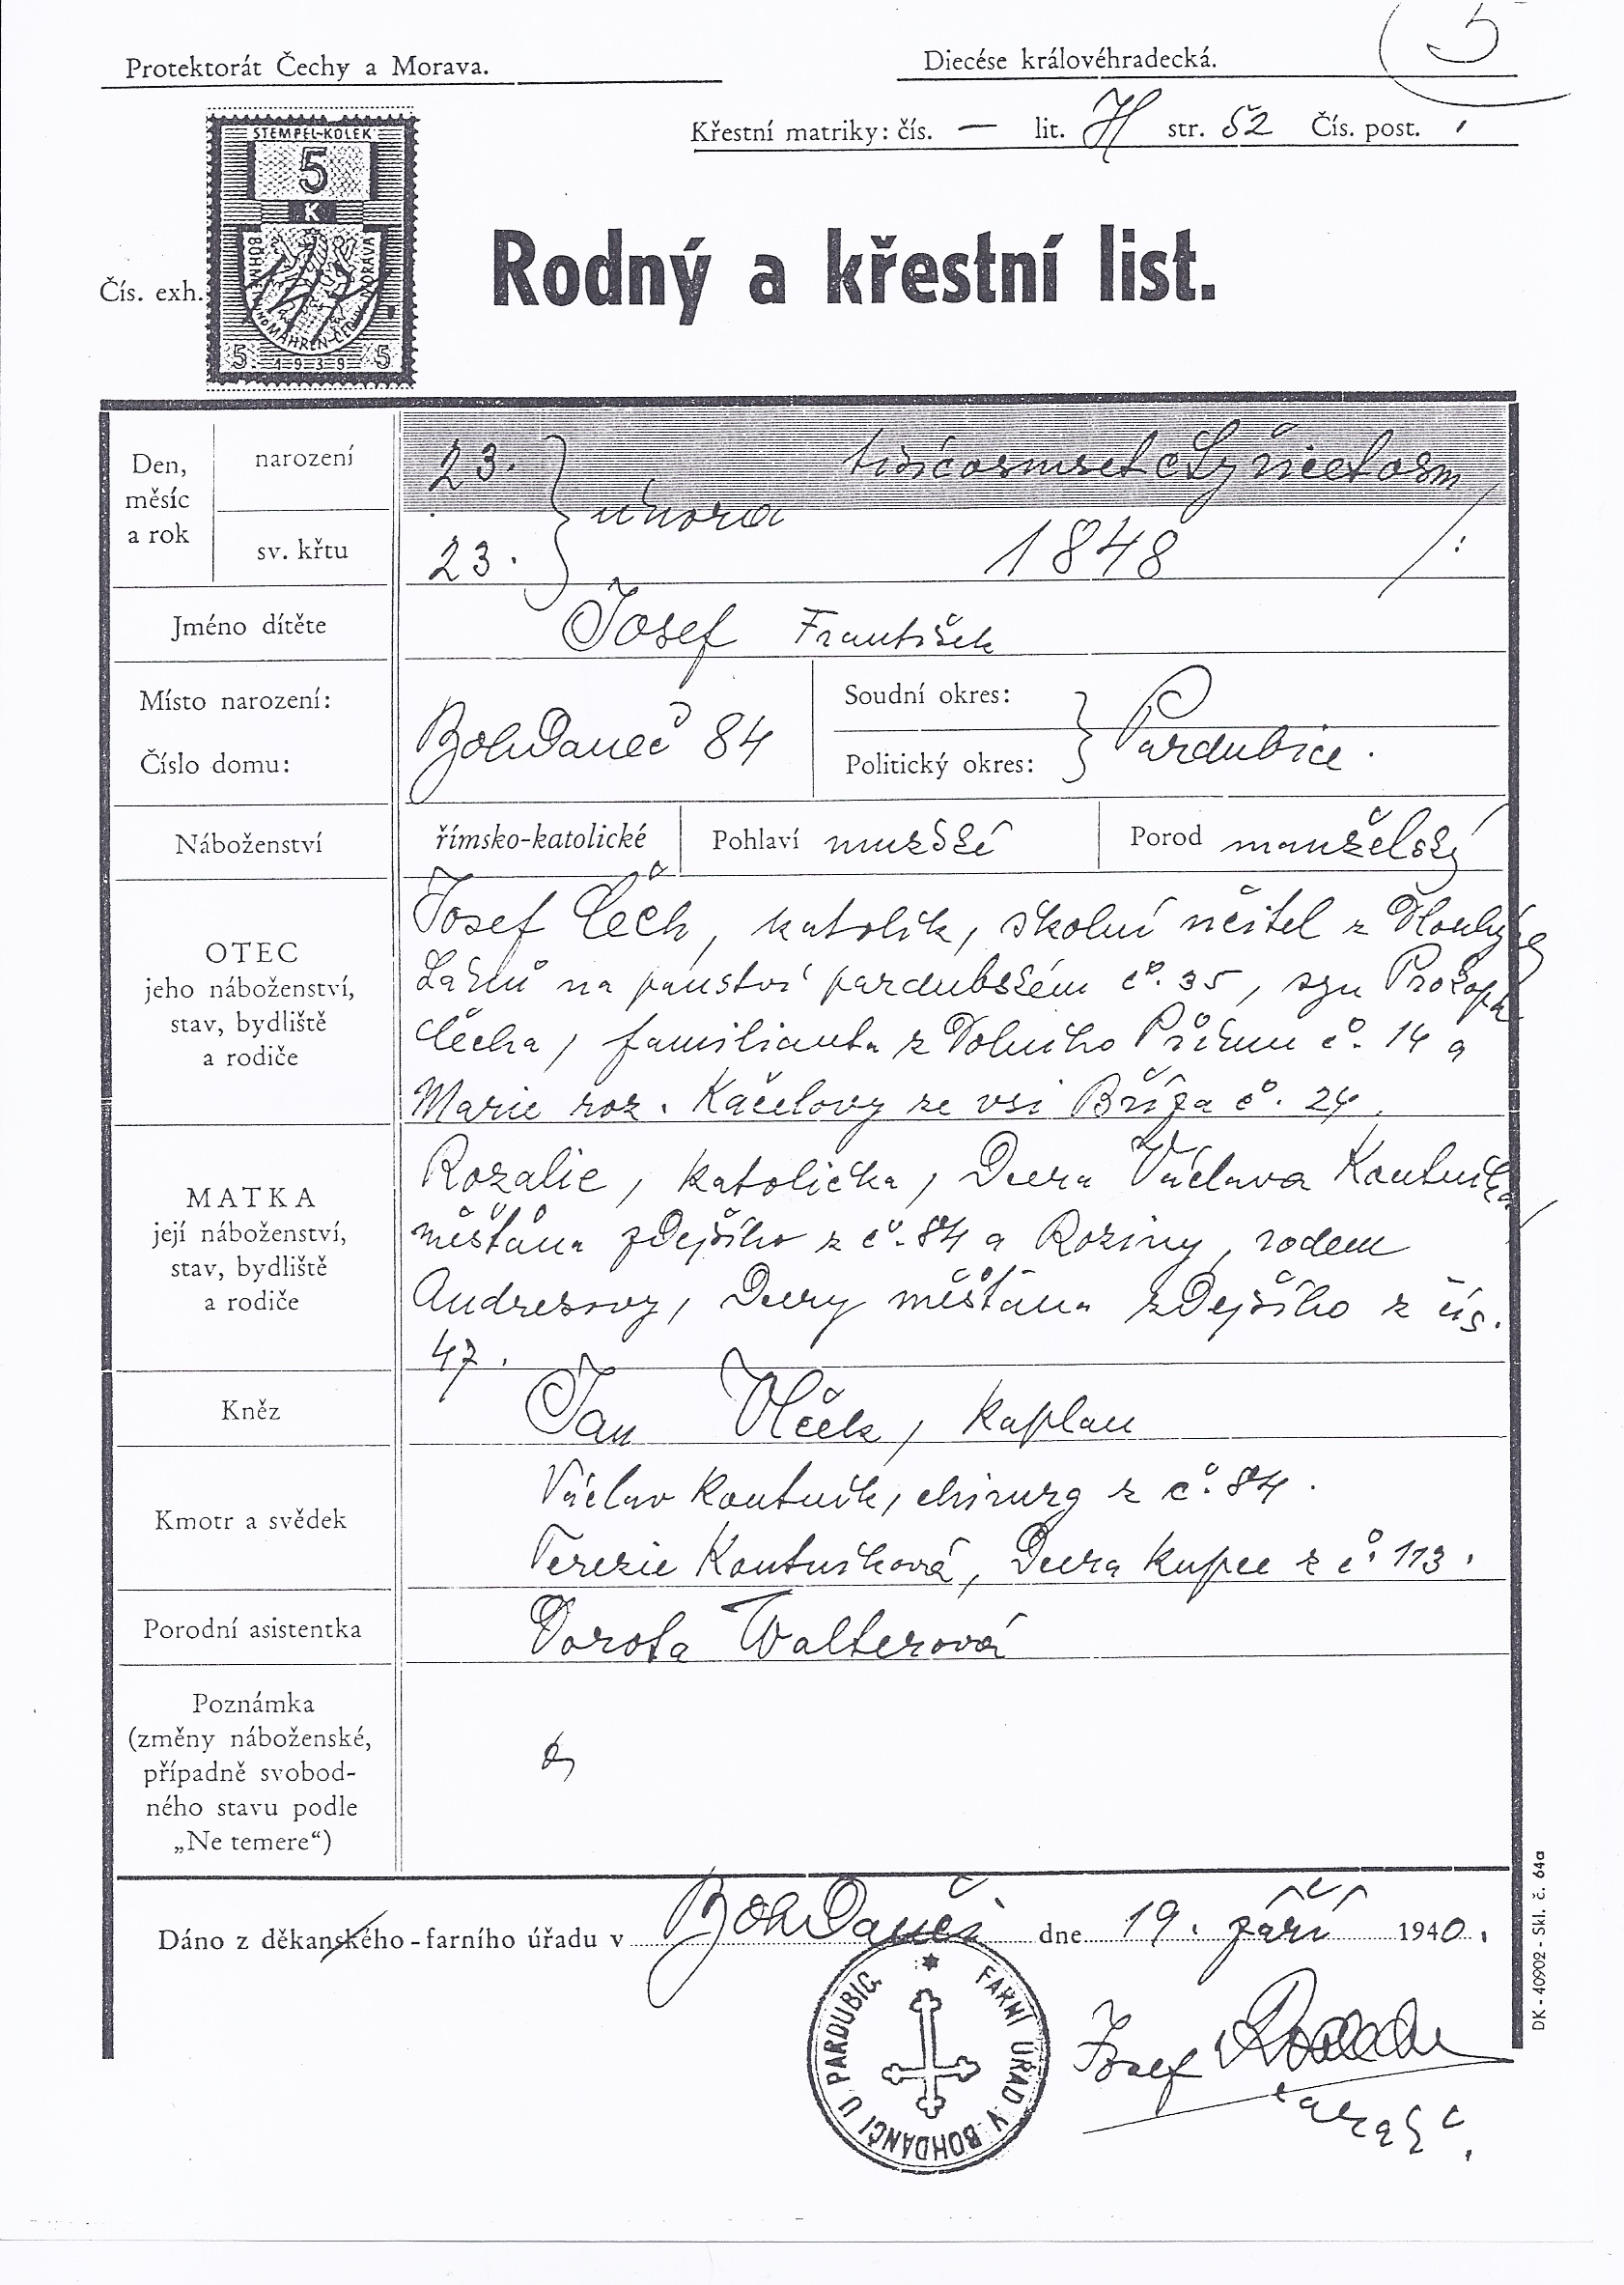 5
Protektorát Čechy a Morava.
Diecése královéhradecká.
Křestní matriky: čís. — lit. H str. 52 Čís. post.
STEMPEL-KOLEK
5
K
BÖHMEN UND MÄHREN-ČECHY MORAVA
5 1939 5
Čís. exh.
Rodný a křestní list.
Den, měsíc a rok
narození
23. února tisícosmsetčtyřicetosm
sv. křtu
23. 1848 /:
Jméno dítěte
Josef František
Místo narození:
Číslo domu:
Bohdaneč 84
Soudní okres:
Politický okres:
Pardubice.
Náboženství
římsko-katolické
Pohlaví mužské
Porod manželský
OTEC
jeho náboženství,
stav, bydliště
a rodiče
Josef Čech, katolík, školní učitel z Dlouhých
Lánů na panství pardubském č. 35, syn Prokopa
Čecha, familianta z Dolního č. 14 a
Marie roz. Káčelovy ze vsi Bříza č. 24.
MATKA
její náboženství,
stav, bydliště
a rodiče
Rozalie, katolička, dcera Václava Koutníka
měšťana zdejšího z č. 84 a Roziny, rodem
Andresovy, dcery měšťana zdejšího z čís.
47.
Kněz
Jan Vlček, kaplan
Kmotr a svědek
Václav Koutník, chirurg z č. 84.
Terezie Koutníková, dcera kupce z č. 113.
Porodní asistentka
Dorota Walterová
Poznámka
(změny náboženské,
případně svobod-
ného stavu podle
„Ne temere“)
Dáno z děkanského-farního úřadu v Bohdanči dne 19. září 1940.
FARNÍ ÚŘAD V BOHDANČI U PARDUBIC
Josef
farář.
DK - 40902 - Skl. č. 64a